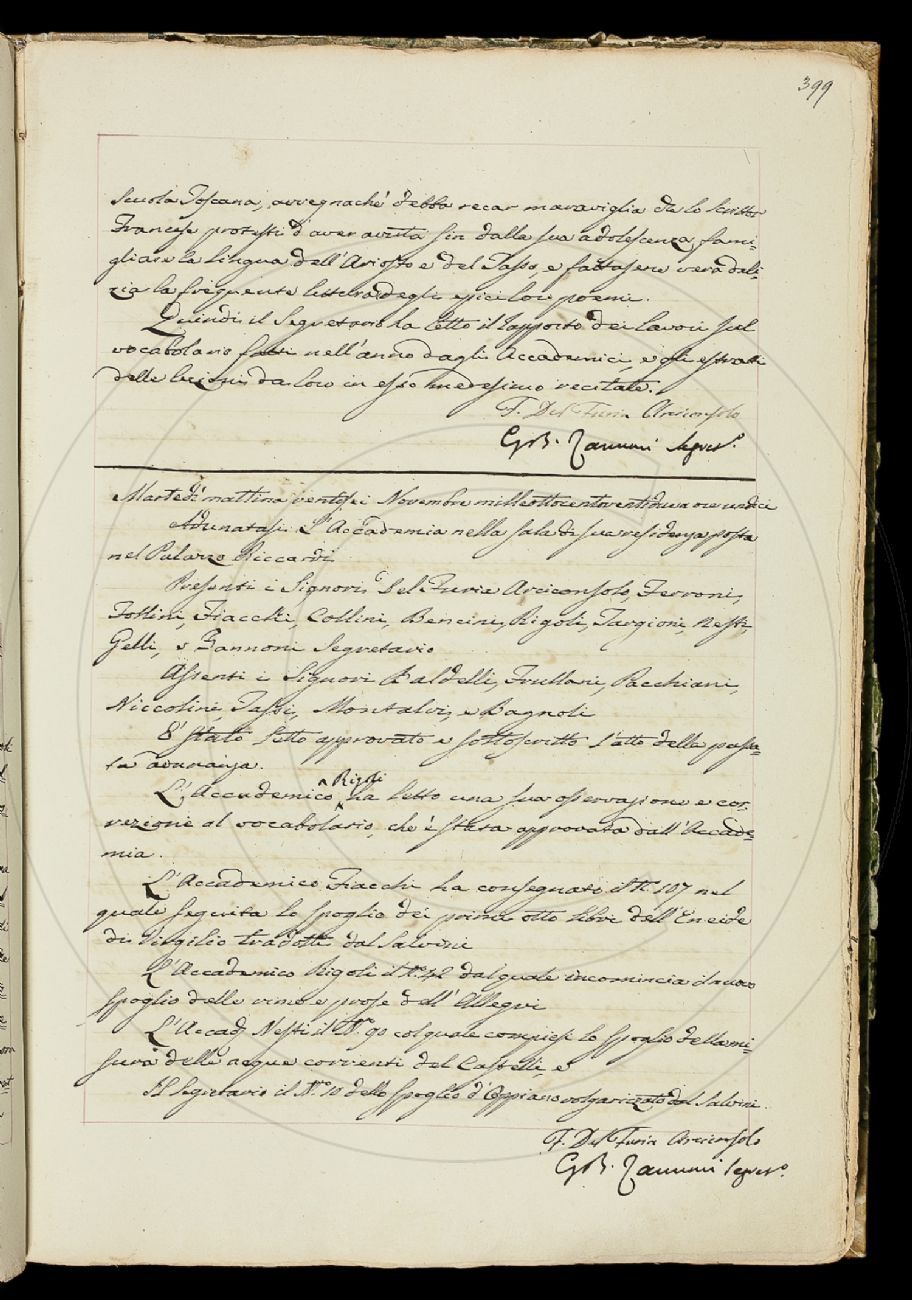 399
Scuola Toscana, avvegnaché debba recar maraviglia da lo Scrittor
Francese protesti d'aver avuta fin dalla sua adolescenza fami-
gliare la Lingua dell'Ariosto e del Tasso, e fattasene vera deli-
zia la frequente lettura degli epici loro poemi.
Quindi il Segretario ha letto il rapporto dei lavori sul
vocabolario fatti nell'anno dagli Accademici, e gli estratti
delle lezioni da loro in esso medesimo recitate.
F. Del Furia Arciconsolo
GB. Zannoni Segret.o
Martedì mattina ventisei Novembre milleottocentoventidue a ore undici
Adunatasi L'Accademia nella sala di sua residenza posta
nel Palazzo Riccardi
Presenti i Signori Del Furia Arciconsolo, Ferroni,
Follini, Fiacchi, Collini, Bencini, Rigoli, Targioni, Nesti,
Gelli, e Zannoni Segretario
Assenti i Signori Baldelli, Frullani, Pacchiani,
Niccolini, Tassi, Montalvi, e Bagnoli
È stato letto approvato e sottoscritto l'atto della passa-
ta adunanza.
L'Accademico Rigoli ha letto una sua osservazione e cor-
rezione al vocabolario, che è stata approvata dall'Accade-
mia.
L'Accademico Fiacchi ha consegnato il N.o 107 nel
quale seguita lo spoglio dei primi otto libri dell'Eneide
di Virgilio tradotti dal Salvini
L'Accademico Rigoli il N.o 42 dal quale incomincia il nuovo
spoglio delle rime e prose dell'Allegri
L'Accad. Nesti il N.o 90 col quale compiesi lo spoglio della mi-
sura delle acque correnti del Castelli, e
Il Segretario il N.o 10 dello spoglio d'Oppiano volgarizzato dal Salvini.
F. Del Furia Arciconsolo
GB. Zannoni Segret.o